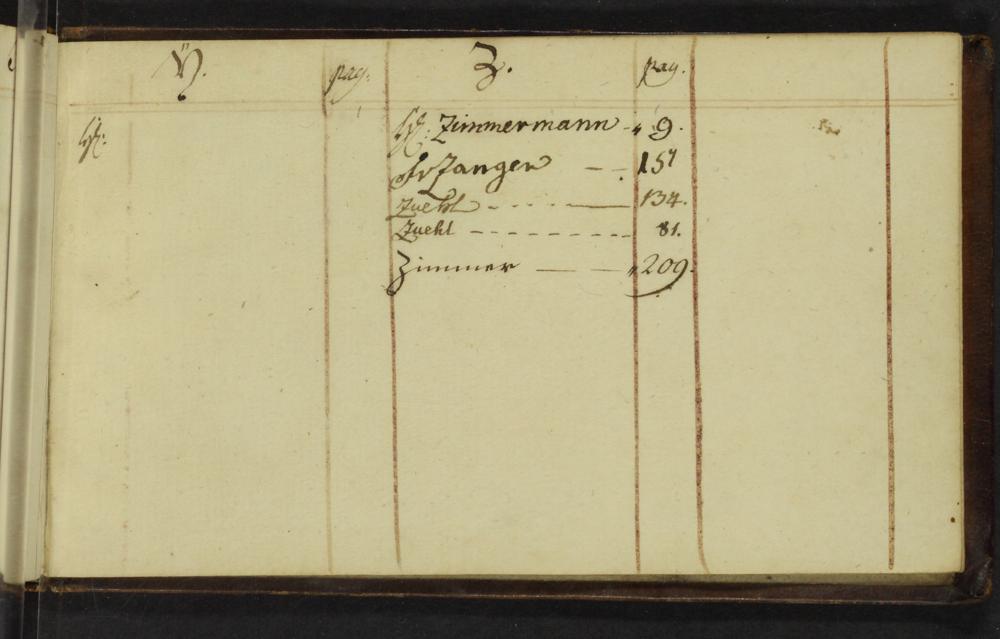 Ÿ. pag: Z. pag.
H: H: Zimmermann - " 9.
Fr Zanger — 157
Zuckt - - - — 134.
Zuckt - - - - - - - - - 81.
Zimmer — — " 209.